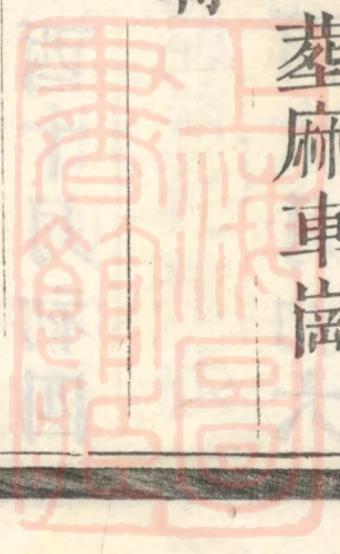 葬麻車崗
上海圖
書館藏